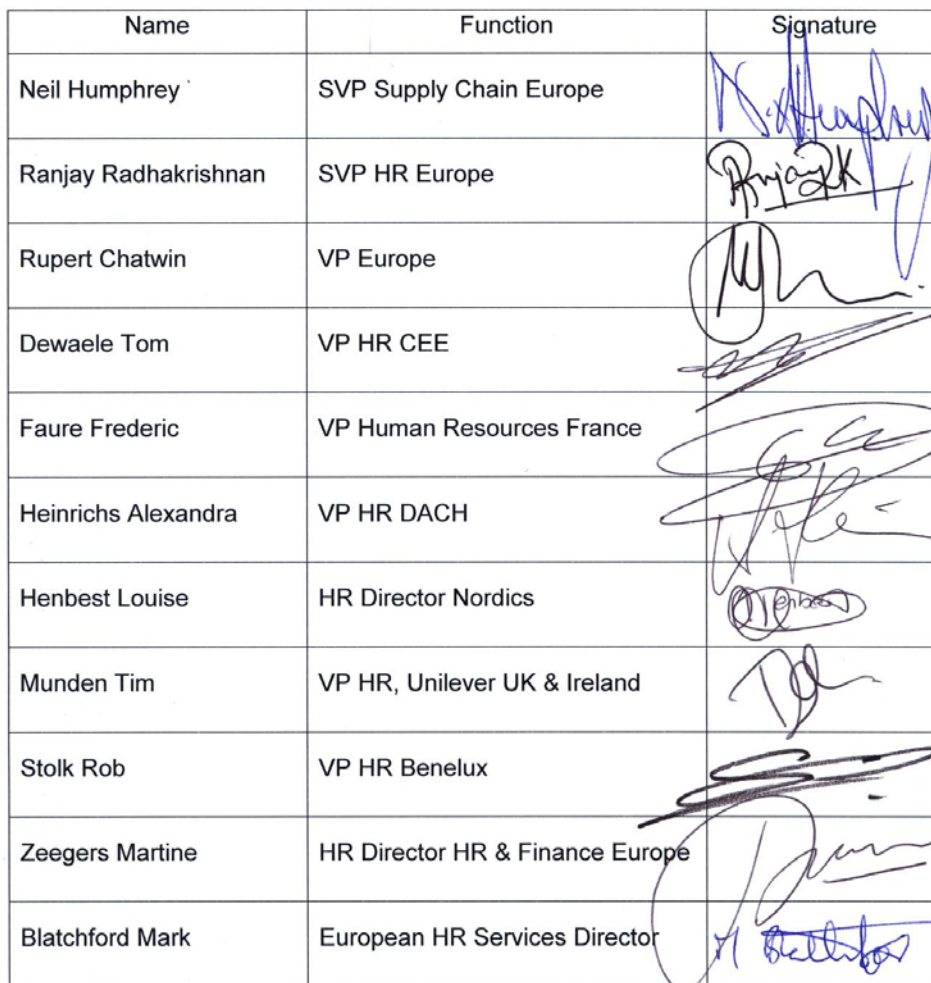 Name Function Signature
Neil Humphrey SVP Supply Chain Europe N. Humphrey
Ranjay Radhakrishnan SVP HR Europe RanjayRK
Rupert Chatwin VP Europe
Dewaele Tom VP HR CEE
Faure Frederic VP Human Resources France
Heinrichs Alexandra VP HR DACH
Henbest Louise HR Director Nordics Henbest
Munden Tim VP HR, Unilever UK & Ireland
Stolk Rob VP HR Benelux
Zeegers Martine HR Director HR & Finance Europe
Blatchford Mark European HR Services Director